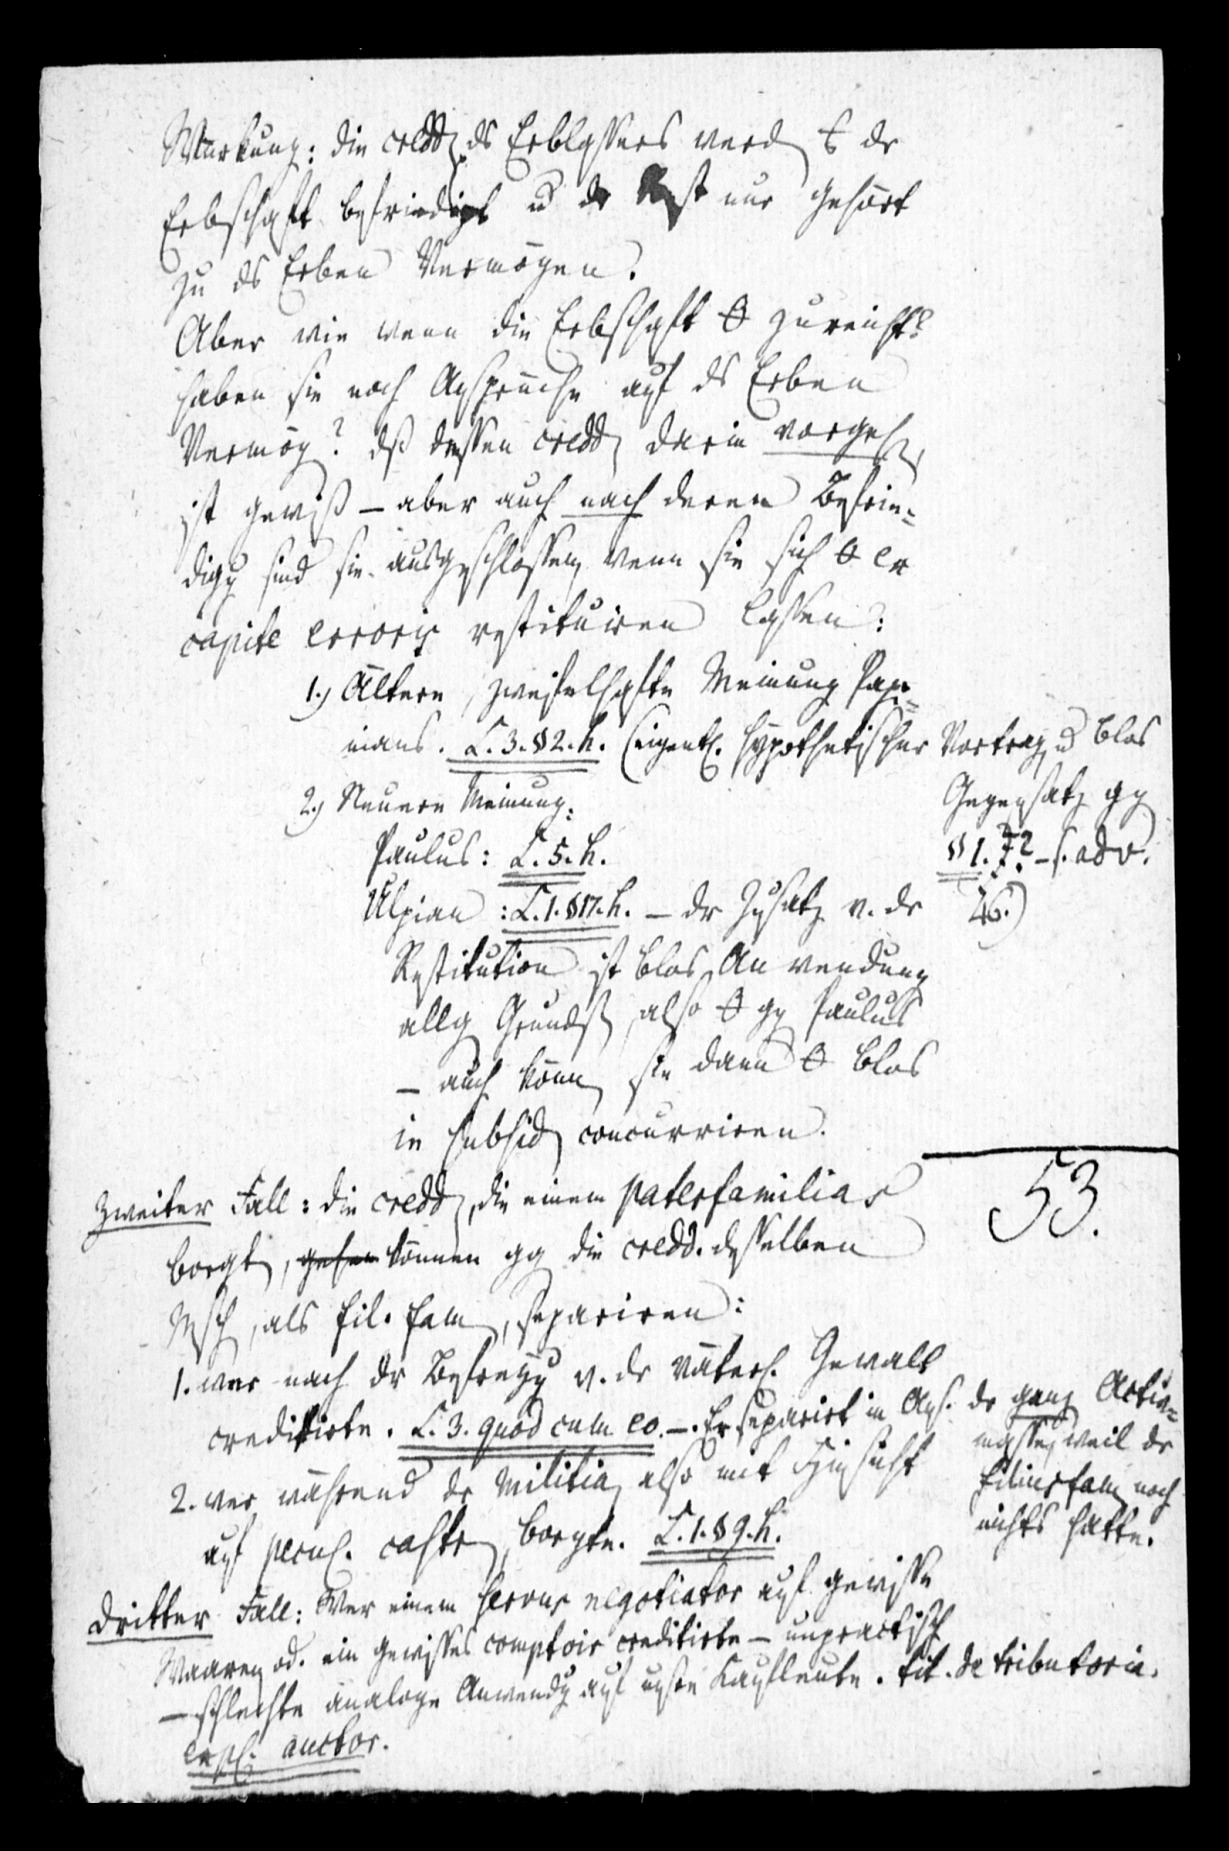 Würkung: die credd. ds Erblassers werd. E dr
Erbschaft befriedigt u dr Rest nur gehört
zu ds Erben Vermögen.
Aber wie wenn die Erbschaft θ zureicht?
haben sie noch Ansprüche auf ds Erben
Vermög? dß dessen credd. darin vorgeh,
ist gewiß – aber auch nach deren Befrie-
digg sind sie ausgeschlossen, wenn sie sich θ ex
capite erroris restituiren lassen:
1.) Ältere, zweifelhafte Meinung Papi-
nians. L. 3. § 2. h. (eigentl. hypothetischer Vortrag, u blos
Gegensatz gg
§ 1. – s. adv.
46.)
2.) Neuere Meinung:
Paulus: L. 5. h.
Ulpian: L. 1. § 17. h. – dr Zusatz v. dr
Restitution ist blos Anwendung
allg Grunds, also θ gg Paulus
– auch könn sie dann θ blos
in subsid concurriren.
53.
Zweiter Fall: die credd, die einem paterfamilias
borgt, gehen können gg die credd. desselben
Msch, als fil. fam, separiren:
1. wer nach dr Befreyg v. dr väterl. Gewalt
creditirte. L. 3. quod cum eo. – Er separirt in Ans. dr ganz Activ-
masse, weil dr
filiusfam noch
nichts hatte.
2. wer während dr militia, also mit Hinsicht
auf pecul. castr, borgte. L. 1. § 9. h.
Dritter Fall: Wer einem servus negotiator auf gewisse
Waaren od. ein gewisses comptoir creditirte – unpractisch
– schlechte analoge Anwendg auf unsre Kaufleute. tit. de tributoria.
expl. auctor.